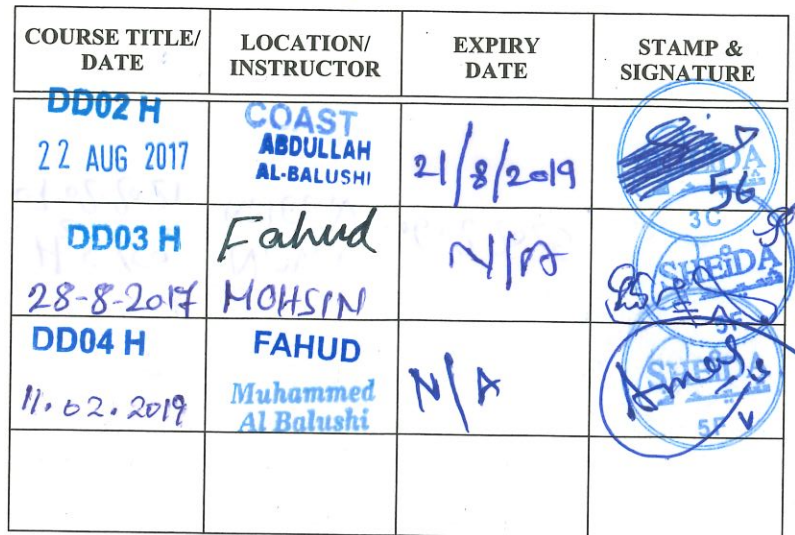 COURSE TITLE/ DATE
LOCATION/ INSTRUCTOR
EXPIRY DATE
STAMP & SIGNATURE
DD02 H
22 AUG 2017
COAST
ABDULLAH
AL-BALUSHI
21/8/2019
56
3C
DD03 H
28-8-2017
Fahud
MOHSIN
N/A
SHEiDA
5F
DD04 H
11.02.2019
FAHUD
Muhammed
Al Balushi
N/A
5F